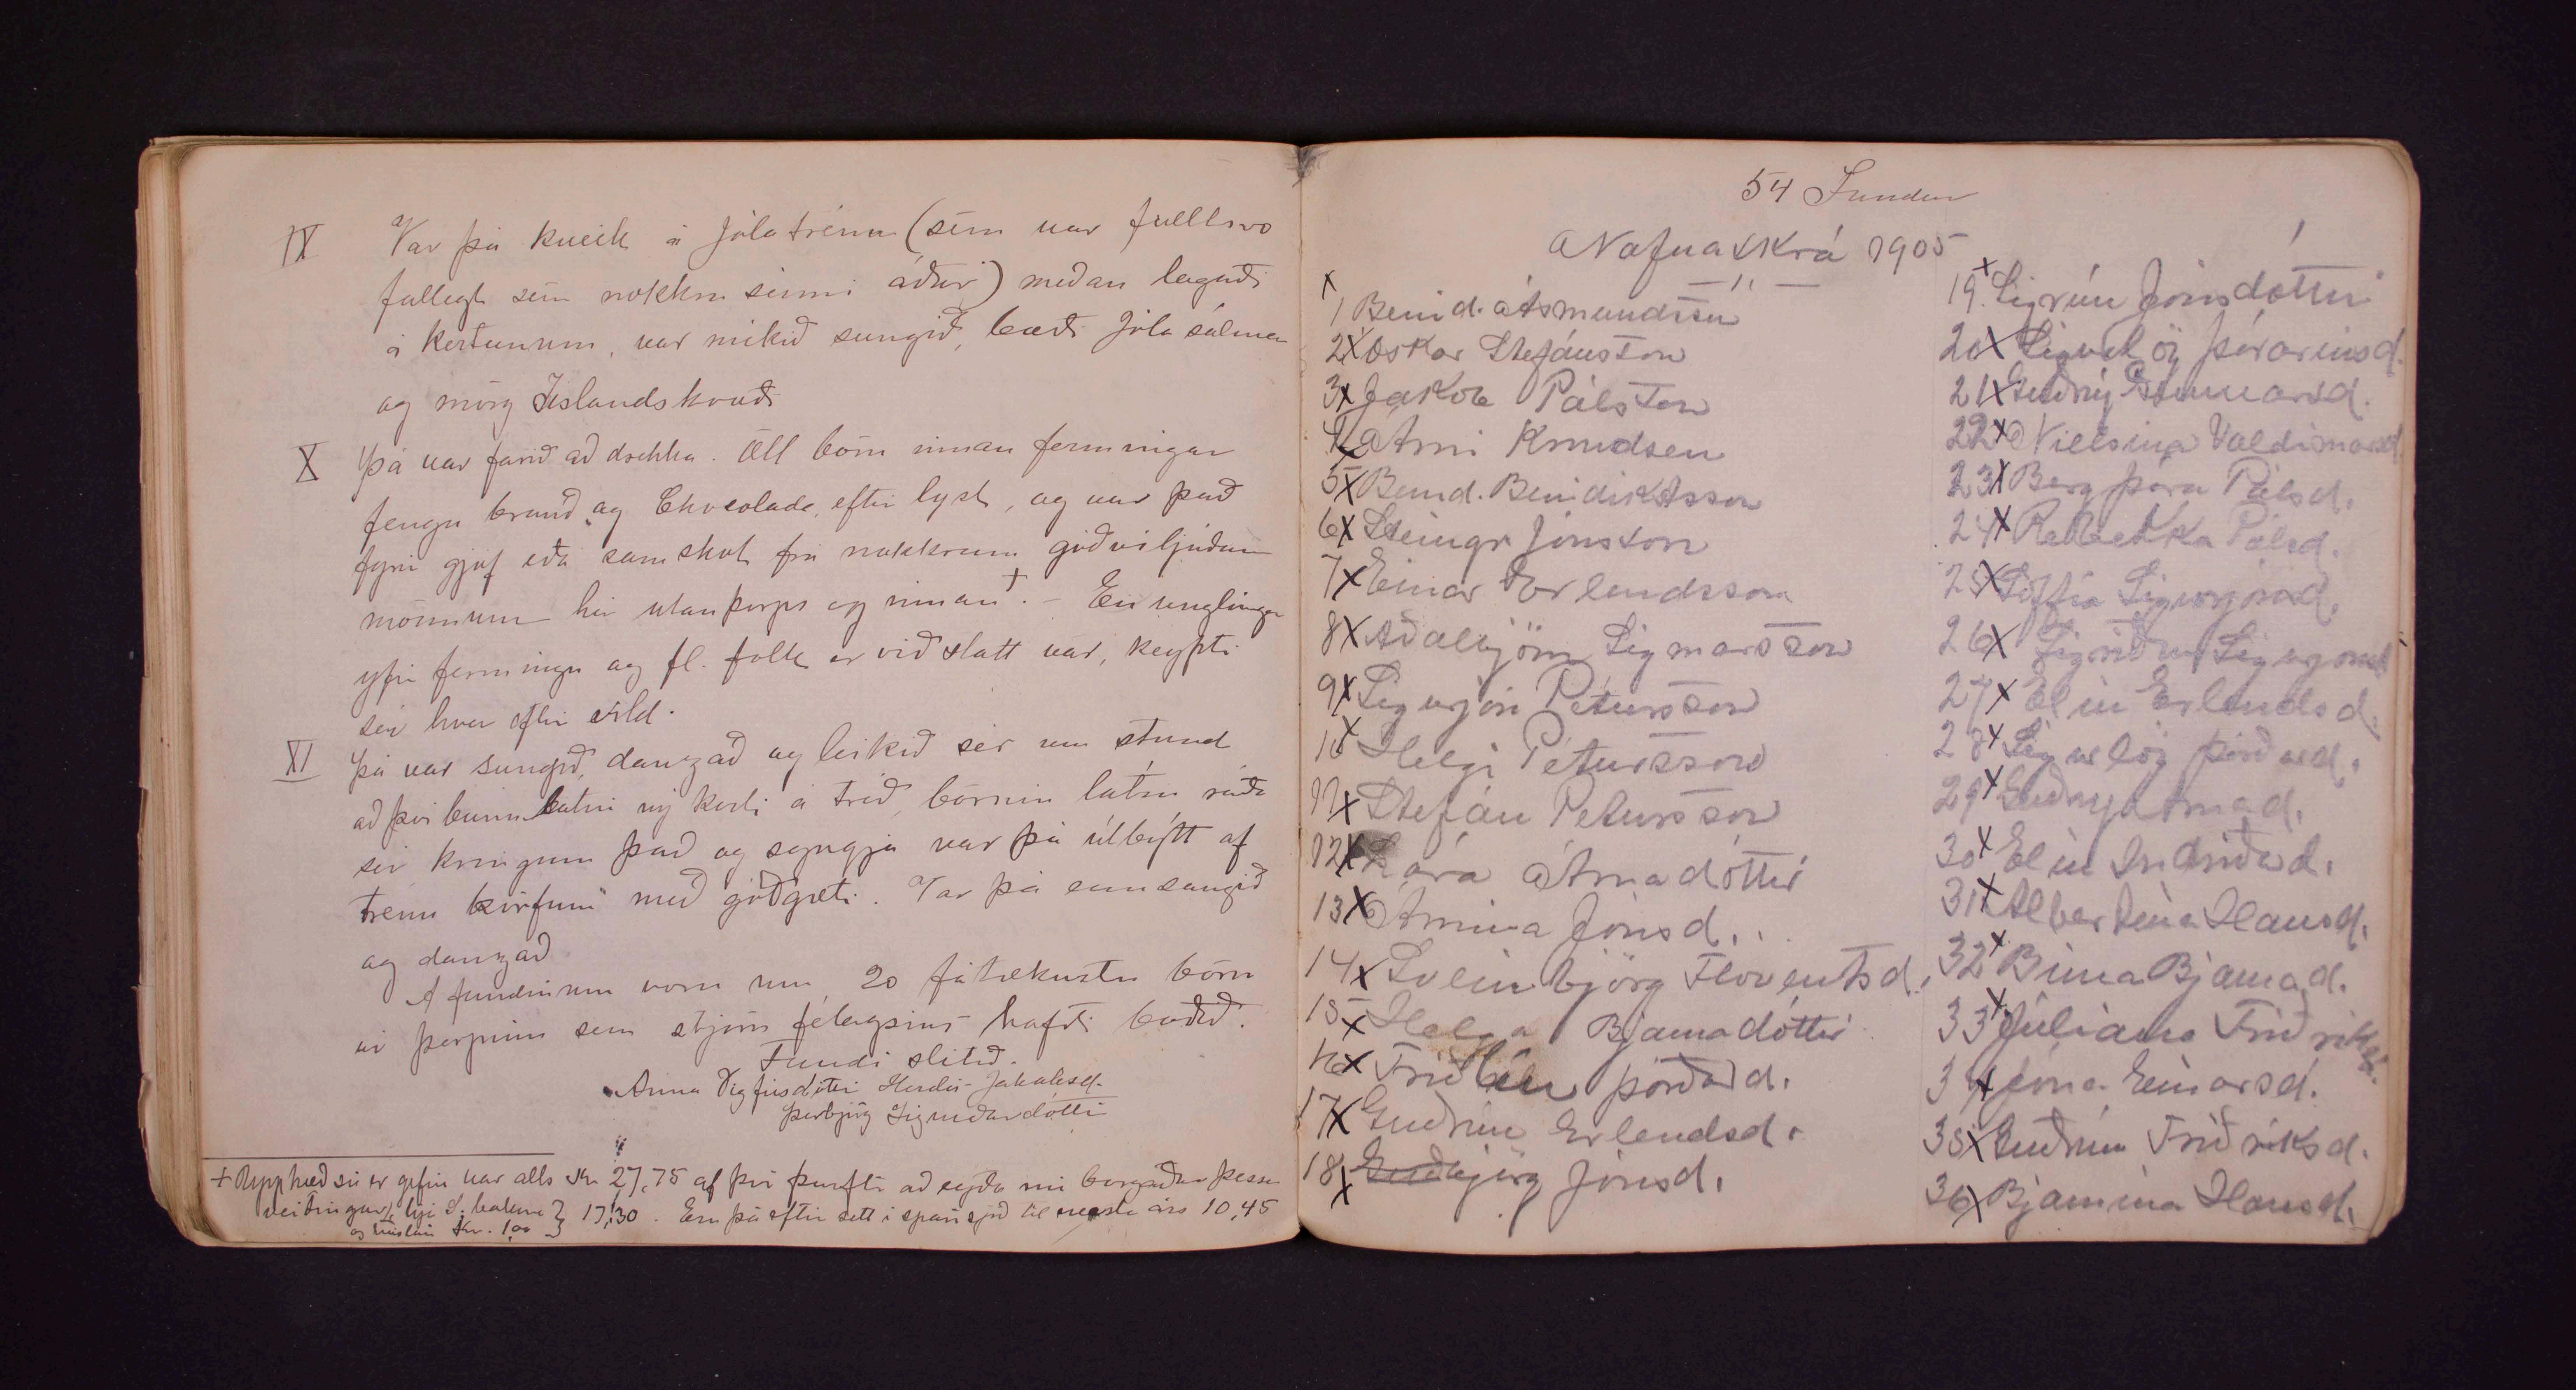 IX Var þá kveik á Jólatrénu (sem var fullsvo
fallegt sem nokkru sinni áður) meðan logaði
á kertunum, var mikið sungið, bæði Jóla sálmar
og mörg Íslandskvæði
X Þá var farið að drekka. Öll börn innan fermingar
fengu brauð og Chocolade, eftir lyst, og var það
fyrir gjöf eða samskot frá nokkrum góðviljuðum
mönnum hér utanþorps og innan +. – En unglingar
yfir fermingu og fl. fólk er viðstatt var, keypti
sér hver eftir vild.
XI Þá var sungið, danzað og leikið sér um stund
að því búnu látin ný kerti á tréð, börnin látin
sér kringum það og syngja var þá útbýtt af
trénu körfum með góðgæti. Var þá sungið
og danzað
Á fundinum voru um 20 fátækustu börn
úr þorpinu sem stjórn félagsins hafði boðið.
Fundi slitið.
Anna Vigfúsdóttir Herdís Jakobsd.
Þorbjörg Sigurðardóttir
+ Upphæð sú er gefin var alls Kr 27,75 af því þurfti að eyða borgaðar þessu
veitingar 17,30. Eru þá eftir sett í sparisjóð til næsta árs 10,45
Kr. 1,00
54 Fundur
Nafnaskrá 1905
— ,, —
x
1 Benid. Ásmundsson
2x Oskar Stefánsson
3x Jakob Pálsson
4x Árni Knudsen
5x Benid. Benidiktsson
6x Steingr Jónsson
7x Einar Erlendsson
8x Aðalbjörn Sigmarsson
9x Sigurjón Pétursson
10x Helgi Pétursson
11x Stefán Petursson
12x Lára Árnadóttir
13x Armina Jónsd.
14x Sveinbjörg Floventsd.
15x Helga Bjarnadóttir
16x Friðlín Þórðard.
17x Guðrún Erlendsd.
18x Guðbjörg Jónsd.
19.x Sigrún Jónsdóttir
20x Sigurlög Þórarinsd.
21x Guðný Gunnarsd.
22x Nielsina Valdimarsd
23x Bergþóra Pálsd.
24x Rebekka Pálsd.
25x Soffía Sigurjónsd.
26x Sigríður Sigurjónsd
27x Elín Erlendsd.
28x Sigurlög Þórðard.
29x Guðný Árnad.
30x Elín Indriðad.
31x Albertína Hansd.
32x Bína Bjarnad.
33x Júliana Friðriksd.
34x Jóna Einarsd.
35x Guðrún Friðriksd.
36x Bjarnína Hansd.